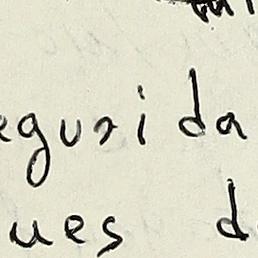 egurida
ues d